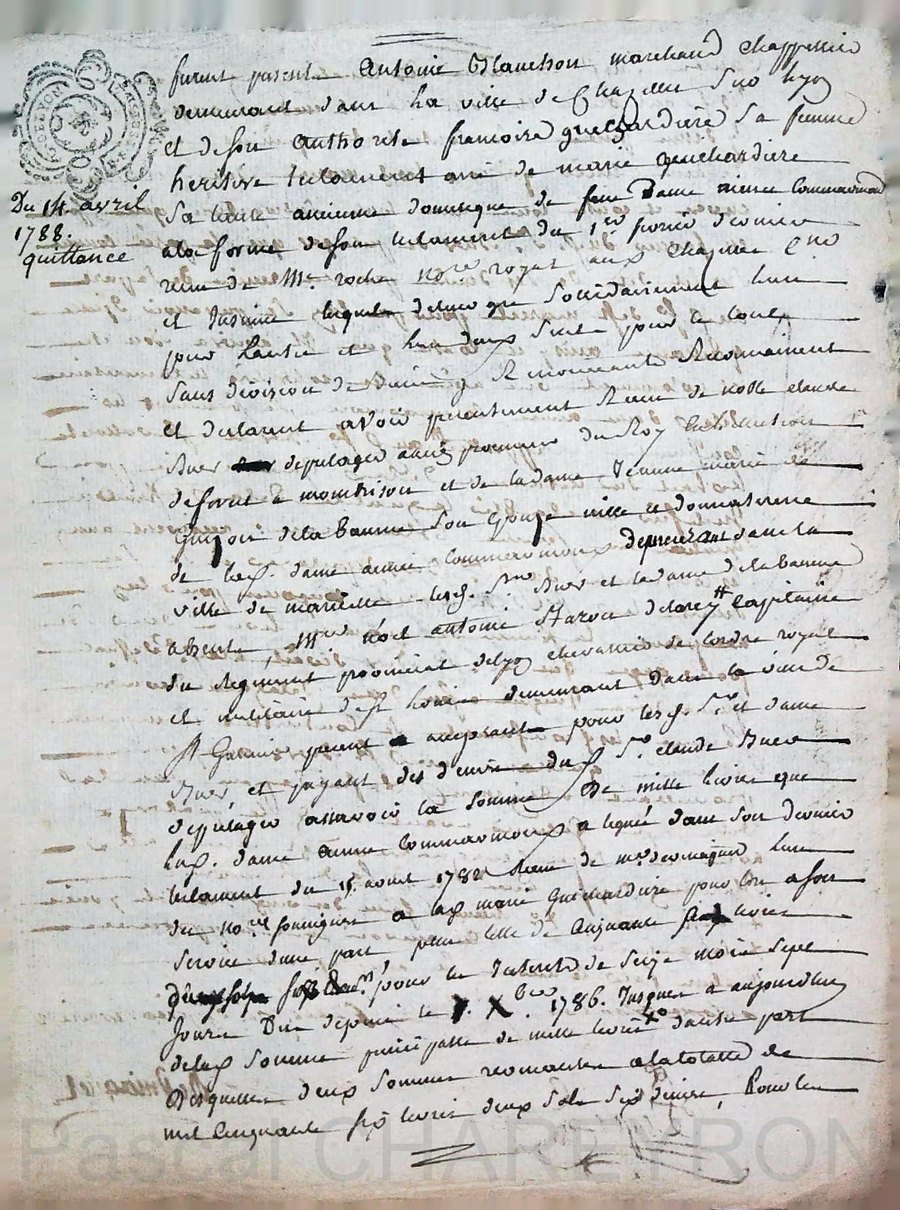 furent present Antoine Blanchon marchand chappellier
demeurant dans la ville de Chazelles sur lyon
et de son authorité françoise guichardière sa femme
heritiere testamentaire de marie guichardière
Sa tante ancienne domestique de feue Dame anne Commarmond
Du 14 avril
1788.
quittance
a la forme de son testament du 1er fevrier dernier
recu de Me. roche nore. royal aux Chazelles
et Insinué lesquels de leur gré solidairement l'un
pour l'autre et l'un d'eux seul pour le tout
sans division de à renonceant Reconnoissent
et declarent avoir presentement Receu de noble claude
Buer depulager ancien procureur du Roy en l'election
de forest a montbrison et de la dame Jeanne marie
Guyot de la Baume son Epouse niece et donnataire
de lad. dame anne Commarmond demeurant dans la
ville de marseille lesd. Sr. Buer et la dame de la Baume
absents, Mre. noel antoine Staron de larey Capitaine
du Regiment provincial de lyon chevalier de l'ordre royal
et militaire de St. Louis demeurant dans la ville de
St. Galmier present acceptant pour lesd. Sr. et dame
Buer, et payant des deniers dud. Sr. claude Buer
depulager assavoir la somme De mille livres que
lad. dame anne Commarmond a legué dans son dernier
testament du 15 aoust 1782 Recu de l'un
des nores. soussignés a lad. marie Guichardière pour
service d'une part, plus celle de cinquante six livres
pour les Interets de seize mois sept
Jours Du depuis le 7. Xbre. 1786. Jusques a aujourdhuy
de lad. somme principalle de mille livres d'autre part
Desquelles deux sommes revenantes a la totalle de
mil cinquante six livres deux sols six deniers, Lesd.
Pascal CHAREYRON